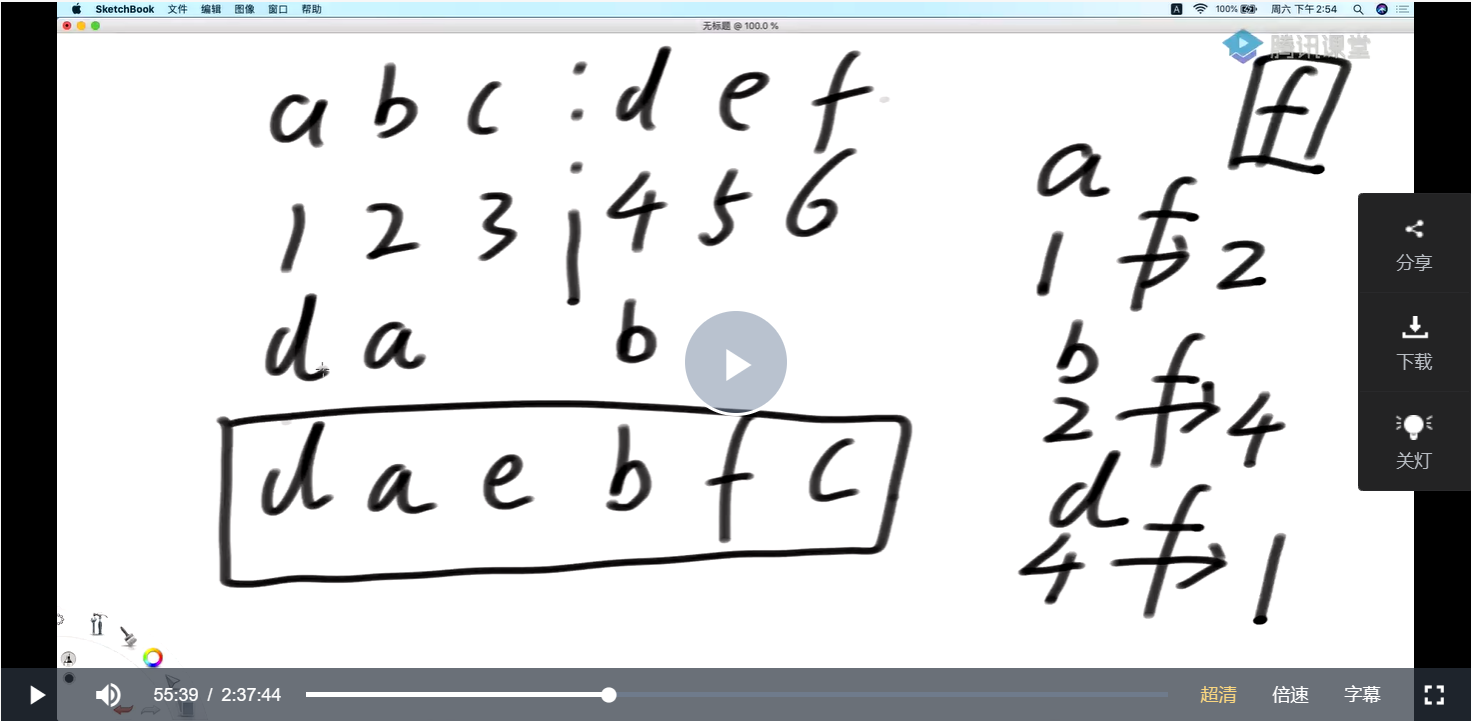 SketchBook 文件 编辑 图像 窗口 帮助 A 100% 周六 下午2:54
无标题 @ 100.0 %
腾讯课堂
a b c d e f
f
1 2 3 4 5 6
a
1 f 2
d a b
b
2 f 4
d a e b f c
d
4 f 1
分享
下载
关灯
55:39 / 2:37:44 超清 倍速 字幕